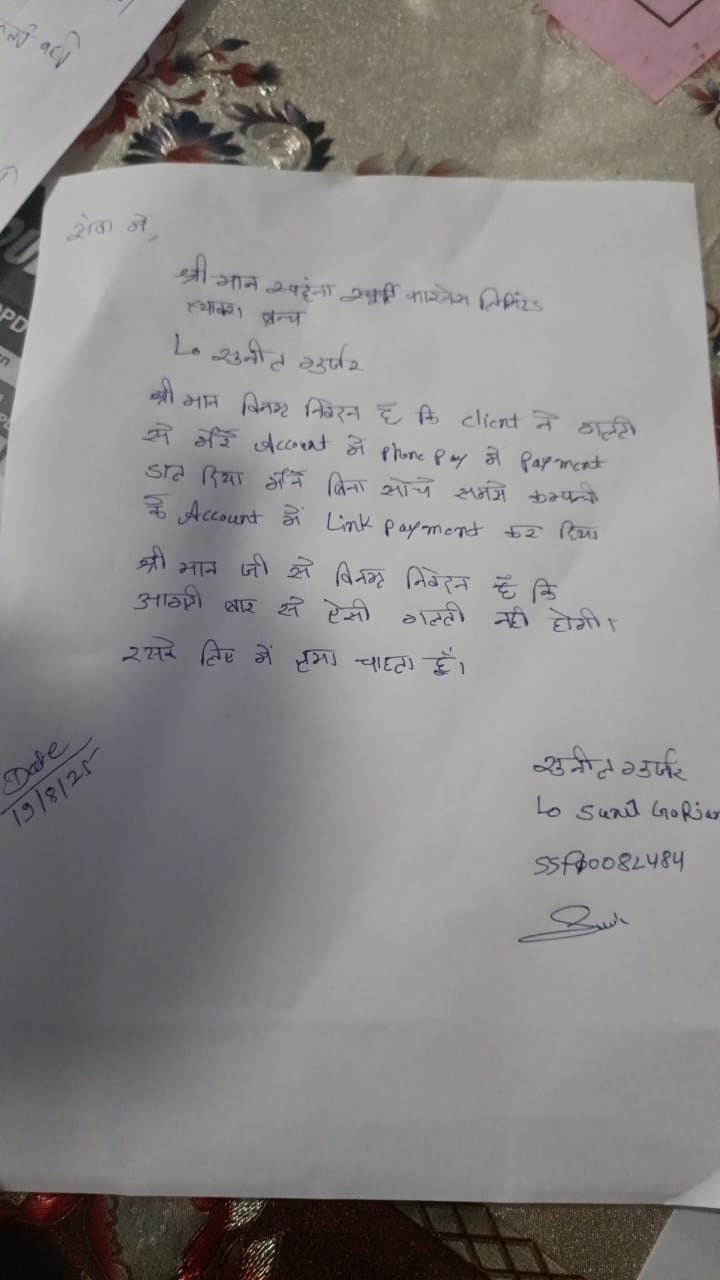 सेवा में,
श्री मान स्वहंना स्फूर्ति फाइनेंस लिमिटेड
ब्रन्च
Lo सुनील गुर्जर
श्री मान विनम्र निवेदन है कि client ने गलती
से मेरे Account में Phone Pay में Payment
डाल दिया मैंने बिना सोचे समझे कम्पनी
के Account में Link Payment कर दिया
श्री मान जी से विनम्र निवेदन है कि
अगली बार से ऐसी गलती नही होगी।
इसके लिए में क्षमा चाहता हूँ।
Date
19/8/25
सुनील गुर्जर
Lo Sunil GoRjar
SSF0082484